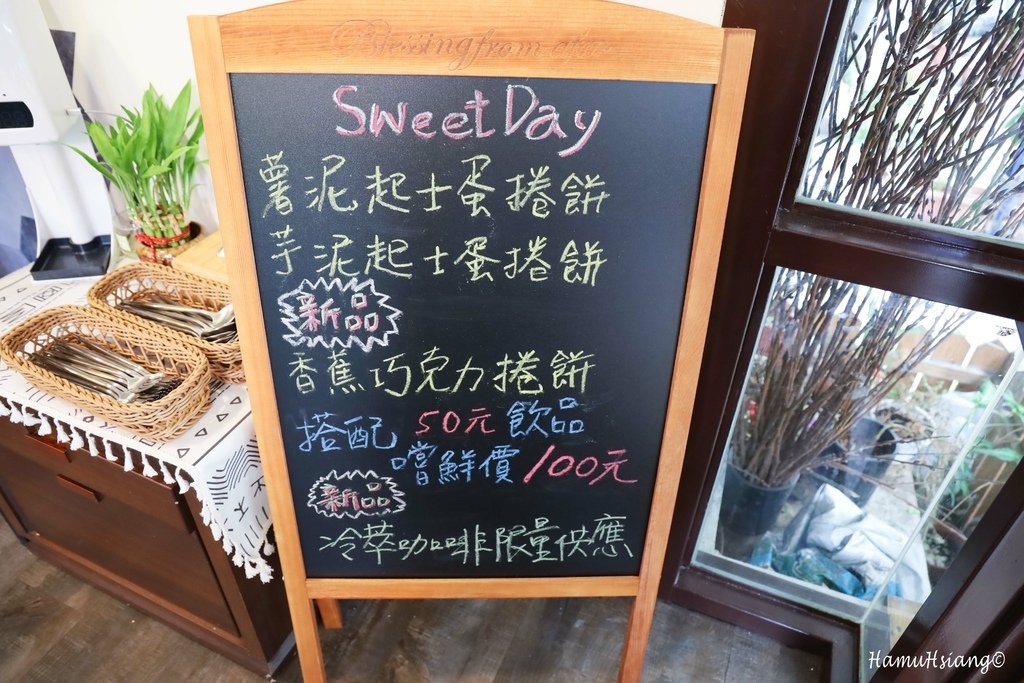 Blessing from
Sweet Day
薯泥起士蛋捲餅
芋泥起士蛋捲餅
新品
香蕉巧克力捲餅
搭配 50元 飲品
嚐鮮價 100元
新品
冷萃咖啡限量供應
HamuHsiang©